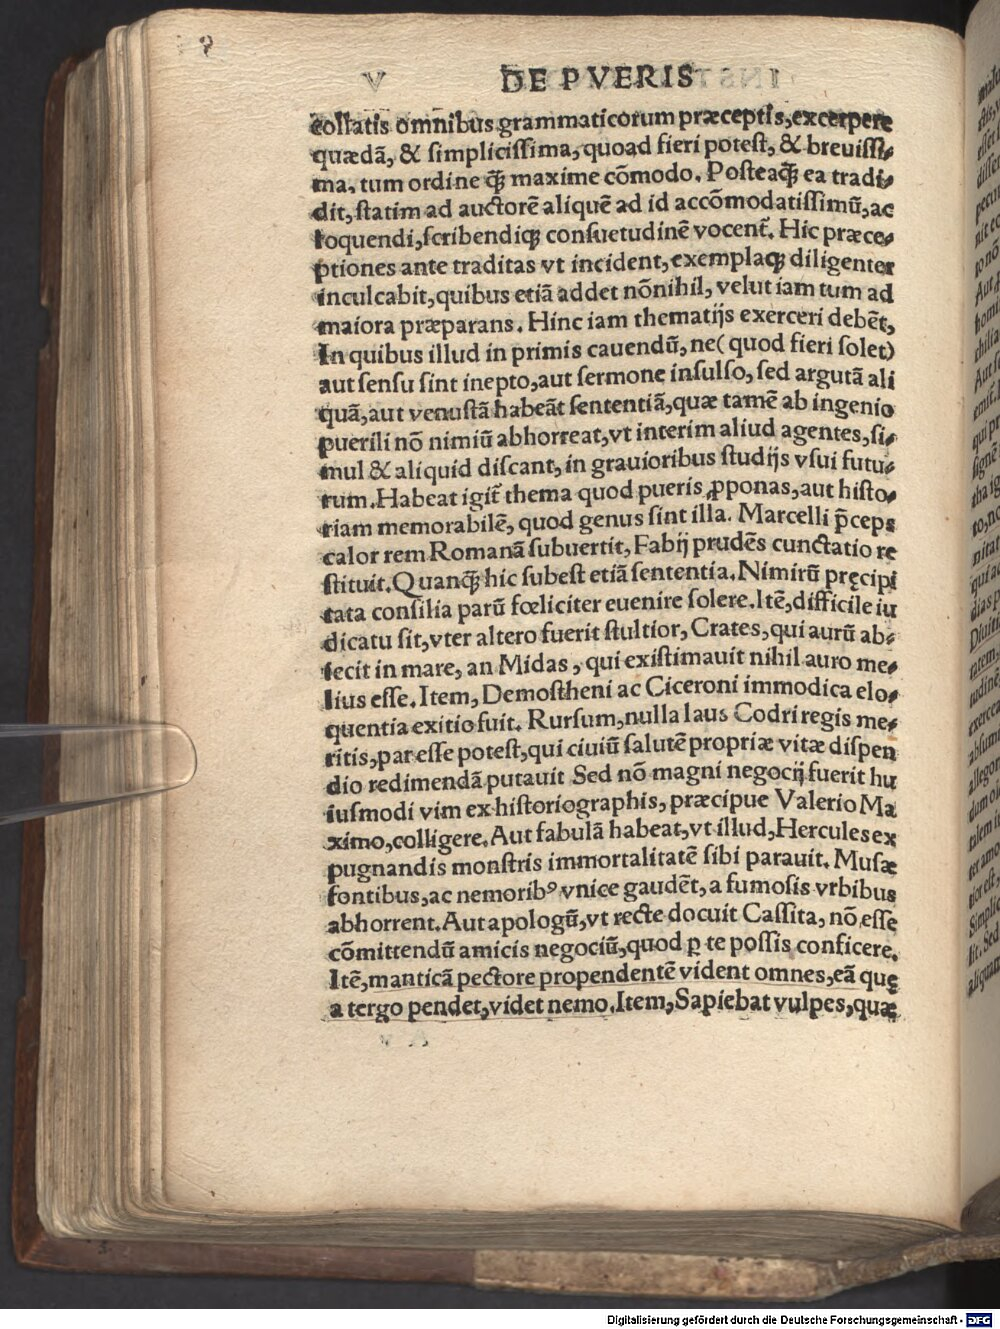 V DE PVERIS
collatis om̃nibus grammaticorum præceptis, excerpere
quædã, & simplicissima, quoad fieri potest, & breuissi⸗
ma, tum ordine q̃ꝫ maxime cõmodo. Posteaq̃ꝫ ea tradi⸗
dit, statim ad auctorẽ aliquẽ ad id accõmodatissimũ, ac
loquendi, scribendiqꝫ consuetudinẽ vocent᷑. Hic præce⸗
ptiones ante traditas vt incident, exemplaqꝫ diligenter
inculcabit, quibus etiã addet nõnihil, velut iam tum ad
maiora præparans. Hinc iam thematijs exerceri debẽt,
In quibus illud in primis cauendũ, ne (quod fieri solet)
aut sensu sint inepto, aut sermone insulso, sed argutã ali
quã, aut venustã habeãt sententiã, quæ tamẽ ab ingenio
puerili nõ nimiũ abhorreat, vt interim aliud agentes, si⸗
mul & aliquid discant, in grauioribus studijs vsui futu⸗
rum. Habeat igit᷑ thema quod pueris ꝓponas, aut histo⸗
riam memorabilẽ, quod genus sint illa. Marcelli p̃ceps
calor rem Romanã subuertit, Fabij prudẽs cunctatio re
stituit. Quanq̃ꝫ hic subest etiã sententia. Nimirũ pręcipi
tata consilia parũ fœliciter euenire solere. Itẽ, difficile iu
dicatu sit, vter altero fuerit stultior, Crates, qui aurũ ab⸗
iecit in mare, an Midas, qui existimauit nihil auro me⸗
lius esse. Item, Demostheni ac Ciceroni immodica elo⸗
quentia exitio fuit. Rursum, nulla laus Codri regis me⸗
ritis, par esse potest, qui ciuiũ salutẽ propriæ vitæ dispen
dio redimendã putauit Sed nõ magni negocij fuerit hu
iusmodi vim ex historiographis, præcipue Valerio Ma
ximo, colligere. Aut fabulã habeat, vt illud, Hercules ex
pugnandis monstris immortalitatẽ sibi parauit. Musæ
fontibus, ac nemoribꝰ vnice gaudẽt, a fumosis vrbibus
abhorrent. Aut apologũ, vt recte docuit Cassita, nõ esse
cõmittendũ amicis negociũ, quod ꝑ te possis conficere.
Itẽ, manticã pectore propendentẽ vident omnes, eã quę
a tergo pendet, videt nemo. Item, Sapiebat vulpes, quæ
Digitalisierung gefördert durch die Deutsche Forschungsgemeinschaft - DFG